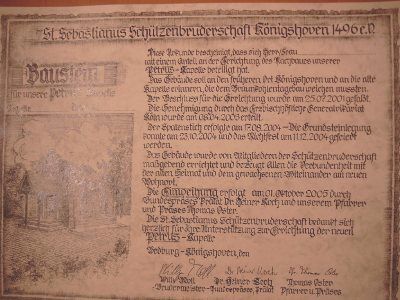 St. Sebastianus Schützenbruderschaft Königshoven 1496 e.V.
Baustein
für unsere Petrus-Kapelle
Diese Urkunde bescheinigt, dass sich Herr/Frau
mit einem Anteil an der Errichtung des Nachbaues unserer
Petrus-Kapelle beteiligt hat.
Das Gebäude soll an den früheren Ort Königshoven und an die alte
Kapelle erinnern, die dem Braunkohlentagebau weichen mussten.
Der Beschluß für die Errichtung wurde am 25.07.2001 gefaßt.
Die Genehmigung durch das Erzbischöfliche Generalvikariat
Köln wurde am 08.04.2003 erteilt.
Der Spatenstich erfolgte am 17.08.2004 - Die Grundsteinlegung
wurde am 23.10.2004 und das Richtfest am 11.12.2004 gefeiert
werden.
Das Gebäude wurde von Mitgliedern der Schützenbruderschaft
maßgebend errichtet und bezeugt Allen die Verbundenheit mit
der alten Heimat und dem gewachsenen Miteinander am neuen
Wohnort.
Die Einweihung erfolgt am 01. Oktober 2005 durch
Bundespräses Prälat Dr. Heiner Koch und unserem Pfarrer
und Präses Thomas Oster.
Die St. Sebastianus Schützenbruderschaft bedankt sich
herzlich für Ihre Unterstützung zur Errichtung der neuen
Petrus-Kapelle
Bedburg-Königshoven, den
Willy Moll Dr. Heiner Koch Thomas Oster
Brudermeister Bundespräses, Prälat Pfarrer u. Präses